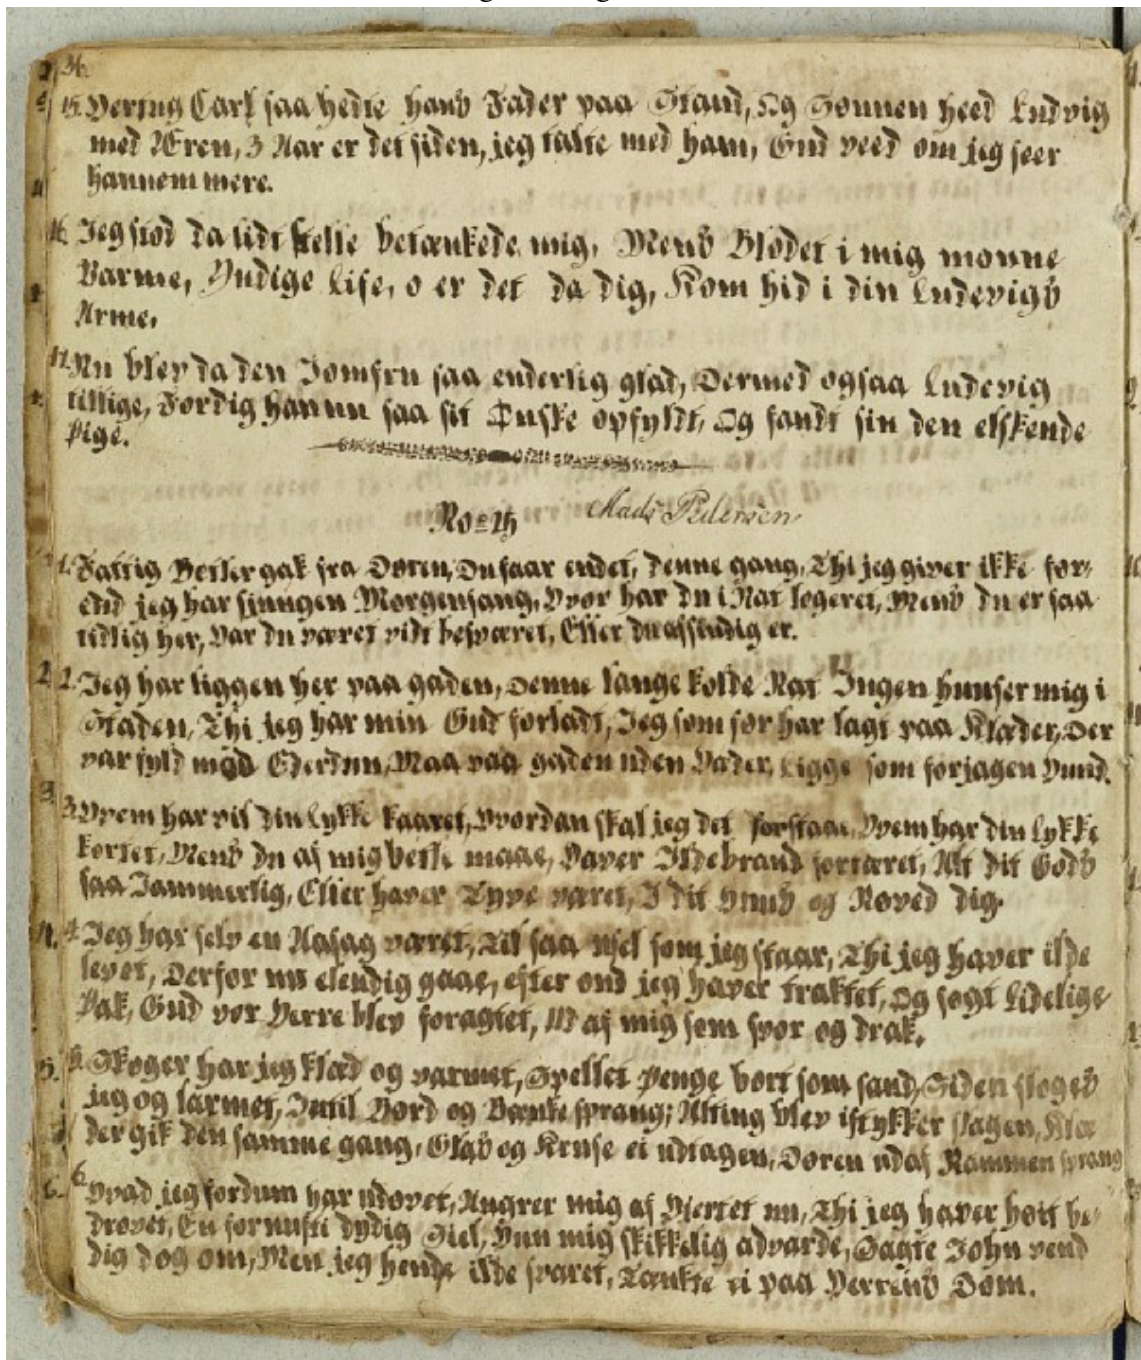 36.
15. Hertug Carl saa hedte hans Fader paa Stand, Og Sønnen heed Ludvig
med Æren, 3 Aar er det siden, jeg talte med ham, Gud veed om jeg seer
hannem mere.
16. Jeg stod da lidt stelle betænkede mig, Mens Blodet i mig monne
Varme, Yndige Lise, o er det da dig, Kom hid i din Ludevigs
Arme.
17. Nu blev da den Jomfru saa enderlig glad, Dermed ogsaa Ludevig
tillige, Fordig han nu saa sit Ønske opfyldt, Og fandt sin den elskende
Pige.
No 25 Mads Pedersen
1. Fattig Betler gak fra Døren, Du faar endet, denne gang, Thi jeg giver ikke for-
end jeg har sjungen Morgensang, Hvor har du i Nat logeret, Mens du er saa
tidlig her, Har du været vidt besværet, Eller du afsindig er.
2. 2. Jeg har liggen her paa gaden, Denne lange kolde Nat Ingen hunser mig i
Staden, Thi jeg har min Gud forladt, Jeg som før har lagt paa Klæder, Der
var fyld med Ederdun, Maa paa gaden uden Vader, Ligge som forjagen Hund.
3. 3. Hvem har vel din Lykke kaaret, Hvordan skal jeg det forstaae, Hvem har din lykke
kortet, Mens du af mig betle maae, Haver Ildebrand fortæret, Alt dit Gods
saa Jammerlig, Eller haver Tyve været, I dit Huus og Røved dig.
4. 4. Jeg har selv en Aasag været, Til saa usel som jeg staar, Thi jeg haver ilde
levet, Derfor nu elendig gaae, efter ond jeg haver traktet, Og søgt Lidelige
Pak, Gud vor Herre blev foragtet, Ud af mig som svor og drak.
5. 5. Skøger har jeg klæd og varmet, Spellet Penge bort som sand, Siden sloges
jeg og larmet, Intil Bord og Bænke sprang; Alting blev istykker slagen, Klæ
der gik den samme gang, Glas og Kruse ei udtagen, Døren udaf Rammen sprang
6. 6. Hvad jeg fordum har udøvet, Angrer mig af Hiertet nu, Thi jeg haver høit be-
drøvet, En fornufti dydig Siel, Hun mig skikkelig advarde, Sagte John vend
dig dog om, Men jeg hende ilde svaret, Tænkte ei paa Herrens Dom.